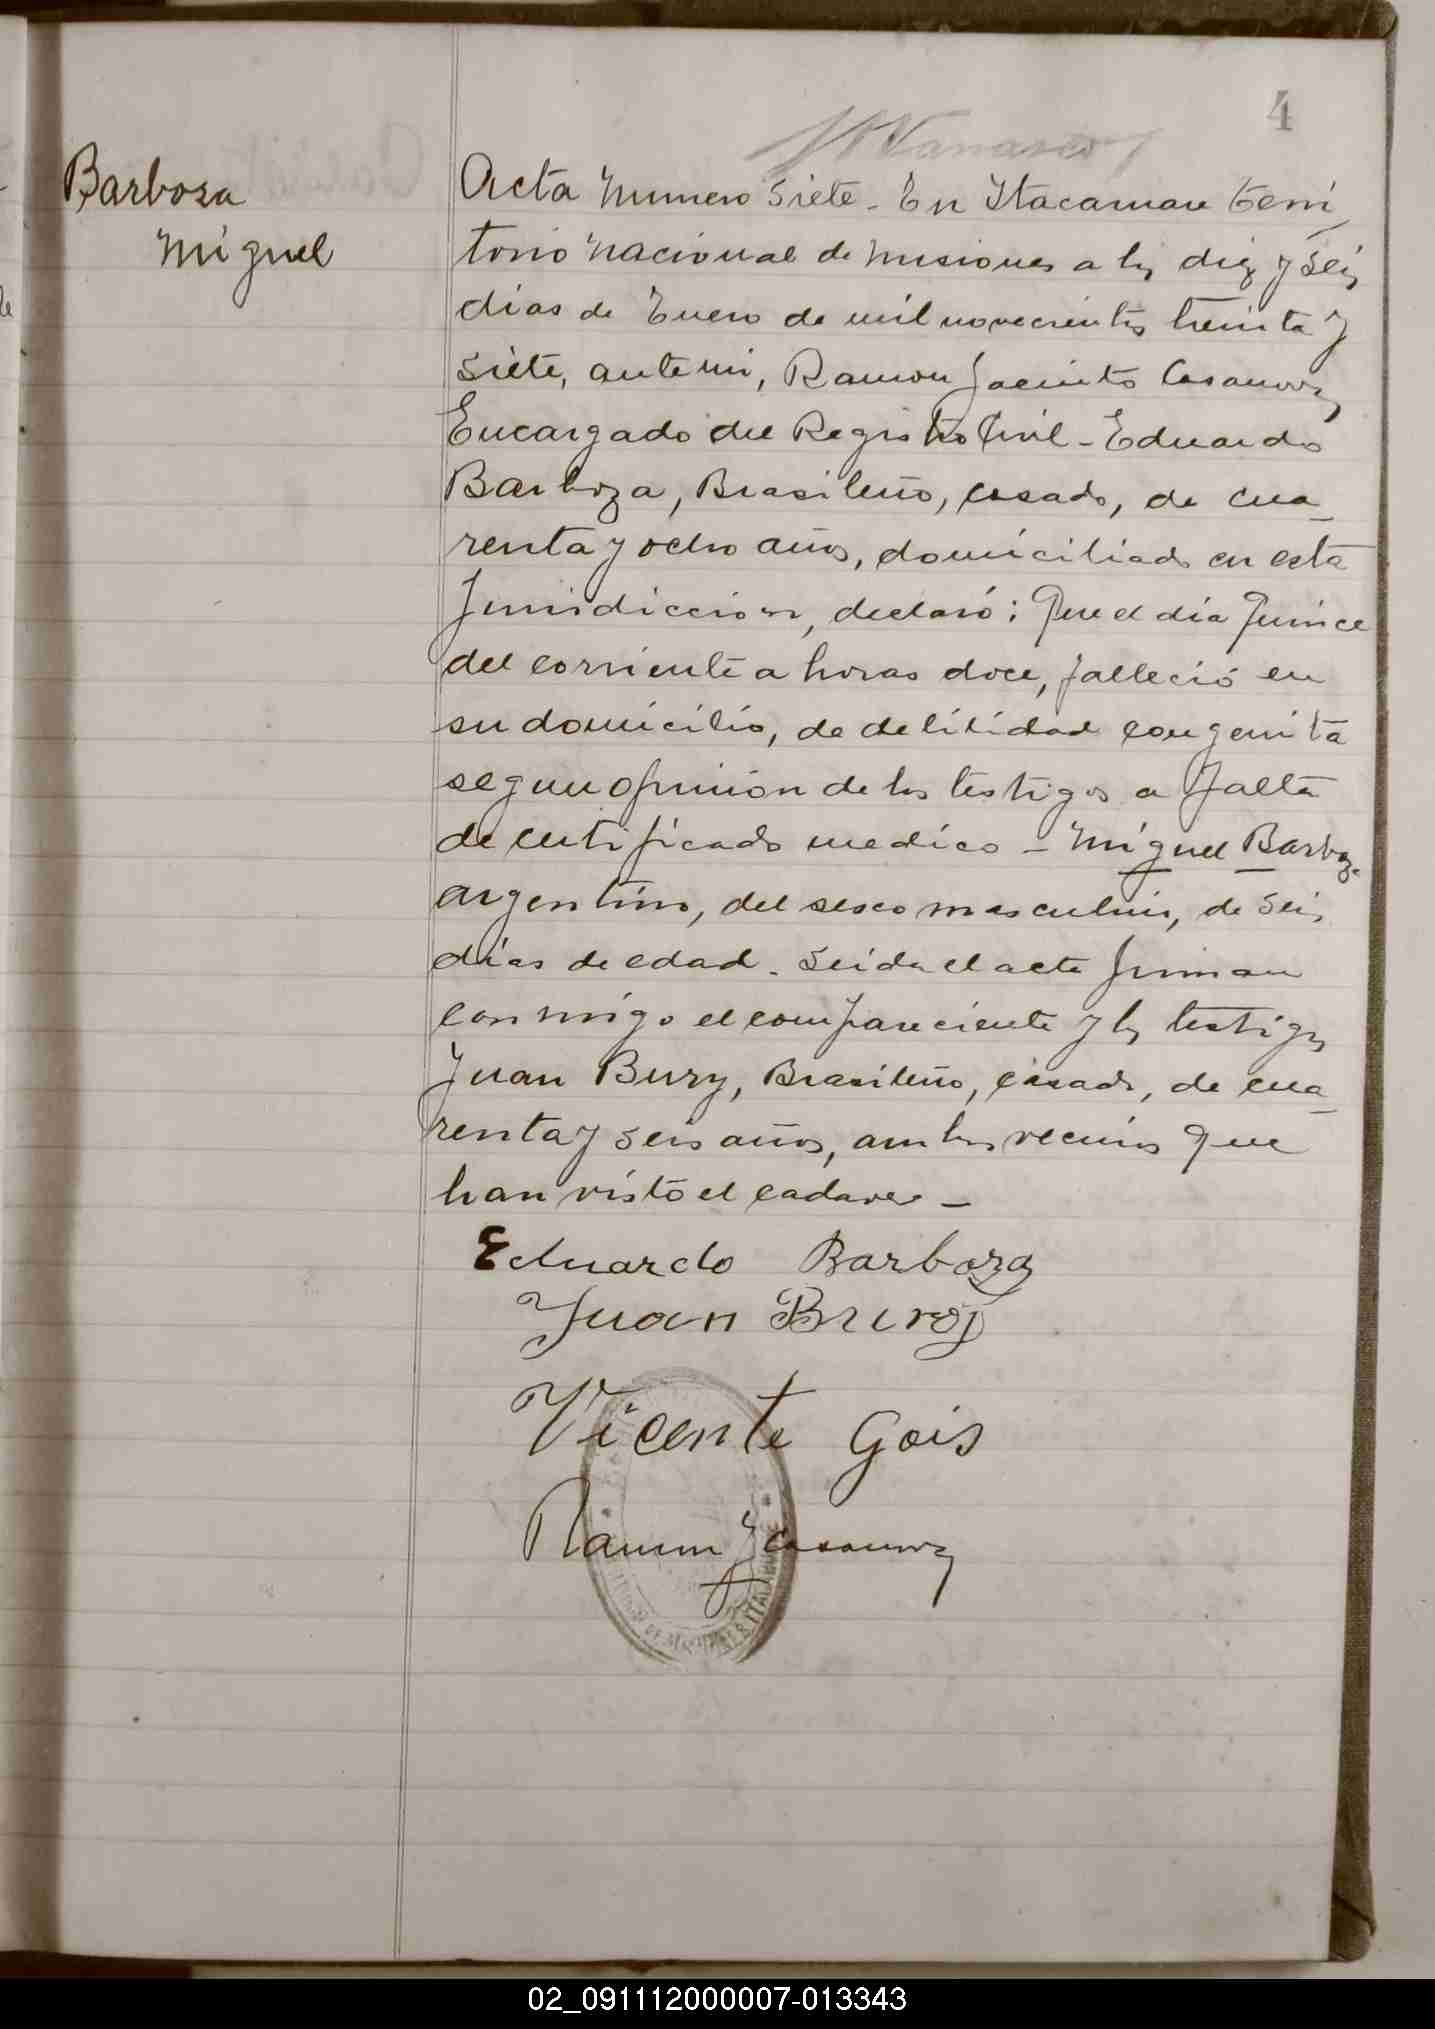 4
Barbosa
Miguel
Acta Numero Siete - En Itacaruare Terri
torio Nacional de Misiones a los diez y seis
dias de Enero de mil novecientos treinta y
siete, ante mi, Ramon Jacinto Casanova
Encargado del Registro Civil - Eduardo
Barboza, Brasileño, casado, de cua_
renta y ocho años, domiciliado en esta
Jurisdiccion, declaró: Que el dia Quince
del corriente a horas doce, falleció en
su domicilio, de debilidad congenita
segun opinion de los testigos a falta
de certificado medico - Miguel Barboza
argentino, del sexo masculino, de seis
dias de edad. Leida el acta firman
conmigo el compareciente y los testigos
Juan Bury, Brasileño, casado, de cua_
renta y seis años, ambos vecinos que
han visto el cadaver -
Eduardo Barboza
Juan Buroj
Vicente Gois
Ramon J Casanova
02_091112000007-013343